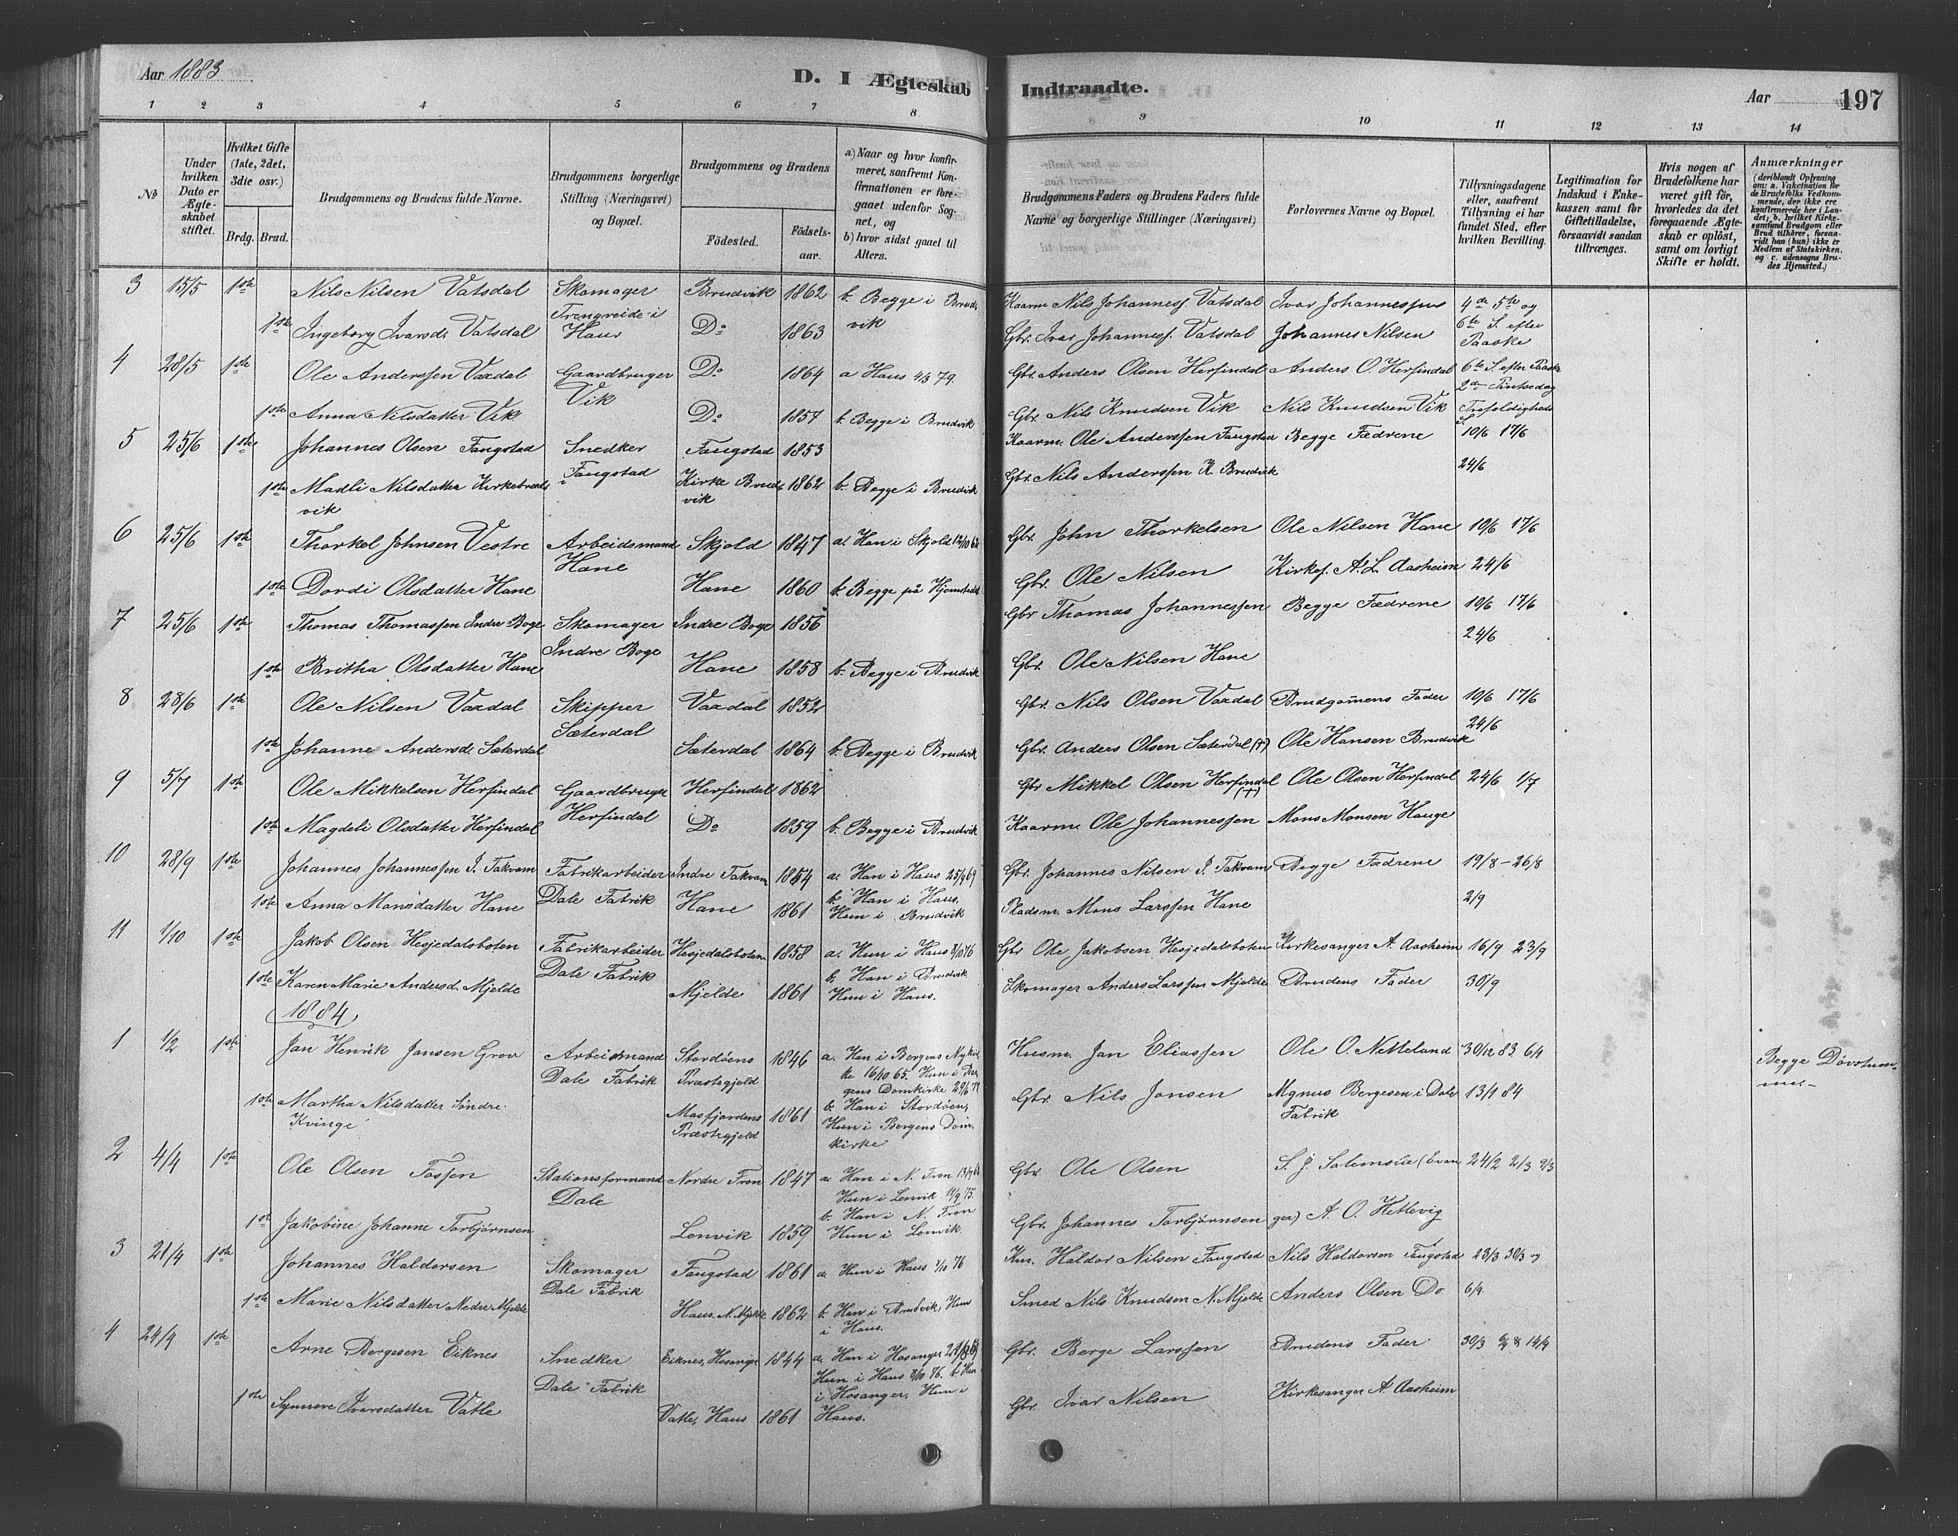 Aar 1883
D. I Ægteskab
Indtraadte.
Aar
197
1 2 3 4 5 6 7 8 9 10 11 12 13 14
№
Under hvilken Dato er Ægteskabet stiftet.
Hvilket Gifte (1ste, 2det, 3die osv.)
Brdg. Brud.
Brudgommens og Brudens fulde Navne.
Brudgommens borgerlige Stilling (Næringsvei) og Bopæl.
Brudgommens og Brudens
Fødested.
Fødselsaar.
a) Naar og hvor konfirmeret, saafremt Konfirmationen er foregaaet udenfor Sognet, og
b) hvor sidst gaaet til Alters.
Brudgommens Faders og Brudens Faders fulde Navne og borgerlige Stillinger (Næringsvei)
Forlovernes Navne og Bopæl.
Tillysningsdagene eller, saafremt Tillysning ei har fundet Sted, efter hvilken Bevilling.
Legitimation for Indskud i Enkekassen samt for Giftetilladelse, forsaavidt saadan tiltrænges.
Hvis nogen af Brudefolkene har været gift før, hvorledes da det foregaaende Ægteskab er opløst, samt om lovligt Skifte er holdt.
Anmærkninger (deriblandt Oplysning om: a. Vakcination for de Brudefolks Vedkommende, der ikke ere konfirmerede her i Landet; b. hvilket Kirkesamfund Brudgom eller Brud tilhører, forsaavidt han (hun) ikke er Medlem af Statskirken, og c. udensogns Brudes Hjemsted.)
3 15/5 1ste Nils Nilsen Vatsdal Skomager Trengreide i Haus Brudvik 1862 b. Begge i Brudvik Kaarm. Nils Johannesf. Vatsdal Ivar Johannessen 4de 5te og
1ste Ingeborg Ivarsd. Vatsdal Do 1863 Gbr. Ivar Johannesf. Vatsdal Johannes Nilsen 6te S. efter Paaske
4 28/5 1ste Ole Anderssen Vaxdal Gaardbruger Vik Do 1864 a Haus 4/5 79. Gbr. Anders Olsen Herfindal Anders O. Herfindal 6te S. efter Paaske 2den Pintsedag
1ste Anna Nilsdatter Vik Do 1857 b. Begge i Brudvik Gbr. Nils Knudsen Vik Nils Knudsen Vik Trefoldigheds S.
5 25/6 1ste Johannes Olsen Fangstad Snedker i Fangstad Fangstad 1853 Kaarm. Ole Anderssen Fangstad Begge Fædrene 10/6 17/6
1ste Madli Nilsdatter Kirkebrudvik Kirke Brudvik 1862 b. Begge i Brudvik Gbr. Nils Anderssen K. Brudvik 24/6
6 25/6 1ste Thorkel Johnsen Vestre Arbeidsmand Hane Skjold 1847 a. Han i Skjold 12/10 62 Gbr. John Thorkelsen Ole Nilsen Hane 10/6 17/6
1ste Dordi Olsdatter Hane Hane 1860 b. Begge på Hjemstedet Gbr. Ole Nilsen Kirkes. A. L. Aasheim 24/6
7 25/6 1ste Thomas Thomassen Indre Boge Skomager Indre Boge Indre Boge 1856 Gbr Thomas Johannessen Begge Fædrene 10/6 17/6
1ste Britha Olsdatter Hane Hane 1858 b. Begge i Brudvik Gbr. Ole Nilsen Hane 24/6
8 28/6 1ste Ole Nilsen Vaxdal Skipper Sæterdal Vaxdal 1852 Gbr. Nils Olsen Vaxdal Brudgommens Fader 10/6 17/6
1ste Johanne Andersd. Sæterdal Sæterdal 1864 b. Begge i Brudvik Gbr. Anders Olsen Sæterdal (†) Ole Hansen Brudvik 24/6
9 5/7 1ste Ole Mikkelsen Herfindal Gaardbruger Herfindal Herfindal 1862 Gbr Mikkel Olsen Herfindal (†) Ole Olsen Herfindal 24/6 1/7
1ste Magdeli Olsdatter Herfindal Do 1859 b. Begge i Brudvik Kaarm. Ole Johannessen Mons Monsen Hauge
10 28/9 1ste Johannes Johannessen I. Takvam Fabrikarbeider Dale Fabrik Indre Takvam 1854 a. Han i Haus 25/9 69 Gbr. Johannes Nilsen I. Takvam Begge Fædrene 19/8 - 26/8
1ste Anna Monsdatter Hane Hane 1861 b. Han i Haus. Hun i Brudvik Pladsm. Mons Larssen Hane 2/9
11 1/10 1ste Jakob Olsen Hesjedalsboten Fabrikarbeider Dale Fabrik Hesjedalsboten 1858 a. Hun i Haus 1/10 76 Gbr Ole Jakobsen Hesjedalsboten Kirkesanger A. Aasheim 16/9 23/9
1ste Karen Marie Andersd. Mjelde Mjelde 1861 b. Han i Brudvik Hun i Haus. Skomager Anders Larssen Mjelde Brudens Fader 30/9
1884
1 1/2 1ste Jan Henrik Jansen Grov Arbeidsmand Dale Fabrik Stordøens Præstegjeld 1846 a. Han i Bergens Nykirke 16/10 65. Hun i Bergens Domkirke Husm. Jan Eliassen Ole O. Netteland 30/12 83. 6/1 Begge Døvstumme
1ste Martha Nilsdatter Søndre Kvinge Masfjordens Præstegjeld 1861 b. Han i Stordøen, Hun i Bergens Domkirke Gbr. Nils Jansen Magnus Bergesen i Dale Fabrik 13/1 84
2 4/4 1ste Ole Olsen Fossen Stationsformand Dale Nordre Fron 1847 a. Han i N. Fron Hun i Lenvik Gbr. Ole Olsen S. J. Salemslie (Evan 24/2 2/3 9/3
1ste Jakobine Johanne Torbjørnsen Lenvik 1859 b. Han i N. Fron Hun i Lenvik. Gbr. Johannes Torbjørnsen ger) A. O. Hetlevig
3 21/4 1ste Johannes Haldorsen Skomager Dale Fabrik Fangstad 1861 a. Hun i Haus 1/10 76 Km. Haldor Nilsen Fangstad Nils Haldorsen Fangstad 23/3 30/3 og
1ste Marie Nilsdatter Nedre Mjelde Haus. N. Mjelde 1862 b. Han i Brudvik, Hun i Haus. Smed Nils Knudsen N. Mjelde Anders Olsen Do 6/4
4 24/4 1ste Arne Bergesen Eiknes Snedker Dale Fabrik Eiknes, Hosanger 1844 a. Han i Hosanger Hun i Haus 1/10 76. b. Han i Hosanger, Hun i Haus. Gbr. Berge Larssen Brudens Fader 30/3 14/4
1ste Synneve Ivarsdatter Vatle Vatle, Haus 1861 Gbr. Ivar Nilsen Kirkesanger A. Aasheim